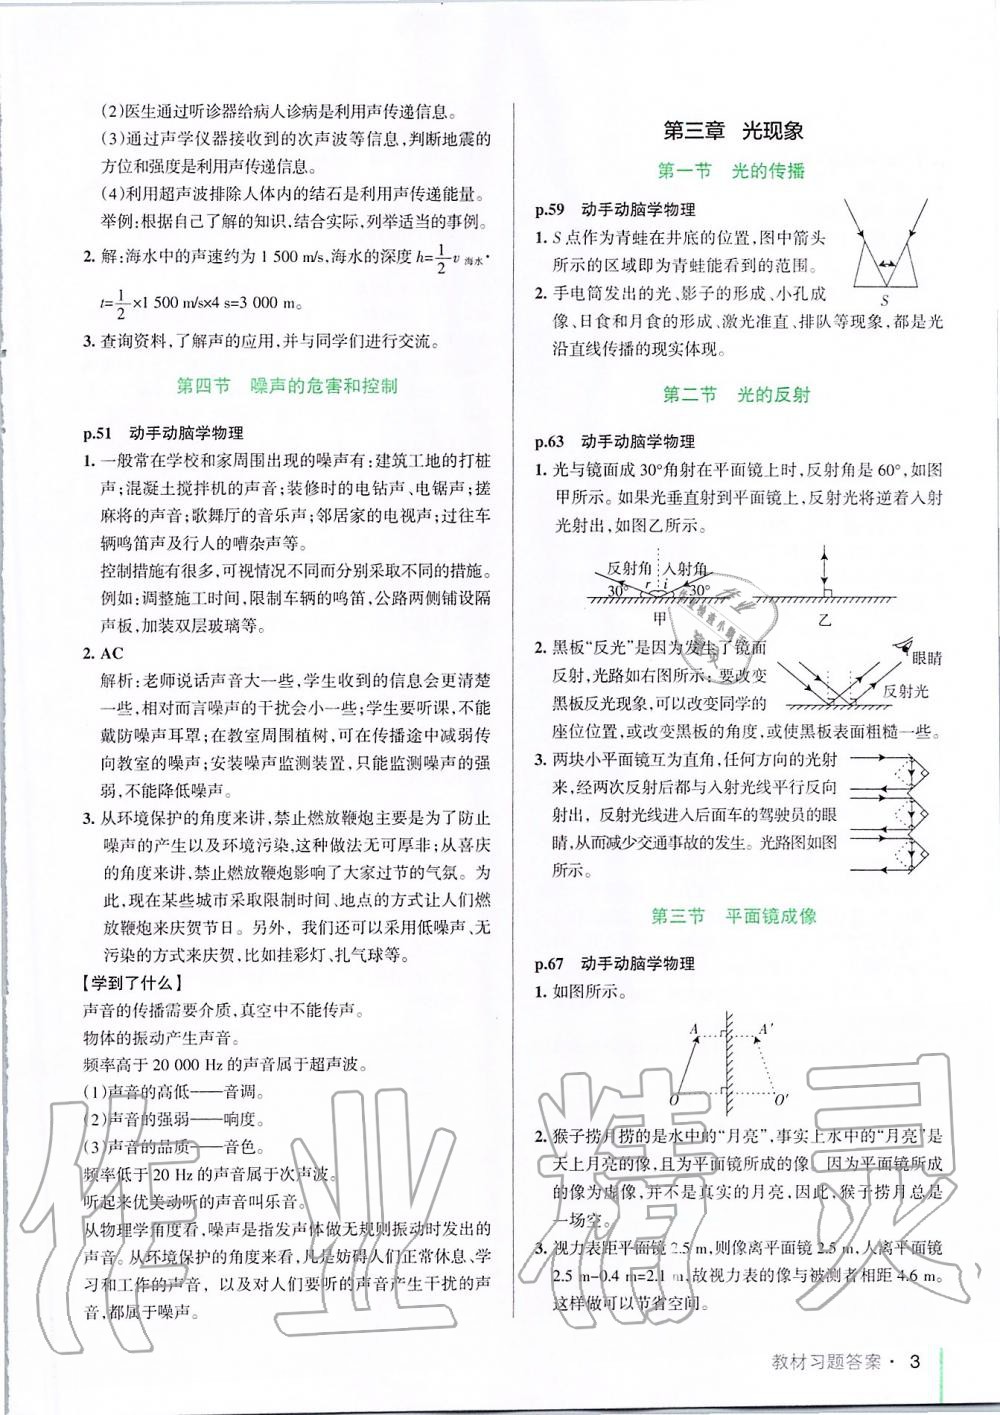 (2)医生通过听诊器给病人诊病是利用声传递信息。
(3)通过声学仪器接收到的次声波等信息,判断地震的
方位和强度是利用声传递信息。
(4)利用超声波排除人体内的结石是利用声传递能量。
举例:根据自己了解的知识,结合实际,列举适当的事例。
2. 解:海水中的声速约为1 500 m/s,海水的深度h=1/2 v海水·
t=1/2×1 500 m/s×4 s=3 000 m。
3. 查询资料,了解声的应用,并与同学们进行交流。
第四节 噪声的危害和控制
p.51 动手动脑学物理
1. 一般常在学校和家周围出现的噪声有:建筑工地的打桩
声;混凝土搅拌机的声音;装修时的电钻声、电锯声;搓
麻将的声音;歌舞厅的音乐声;邻居家的电视声;过往车
辆鸣笛声及行人的嘈杂声等。
控制措施有很多,可视情况不同而分别采取不同的措施。
例如:调整施工时间,限制车辆的鸣笛,公路两侧铺设隔
声板,加装双层玻璃等。
2. AC
解析:老师说话声音大一些,学生收到的信息会更清楚
一些,相对而言噪声的干扰会小一些;学生要听课,不能
戴防噪声耳罩;在教室周围植树,可在传播途中减弱传
向教室的噪声;安装噪声监测装置,只能监测噪声的强
弱,不能降低噪声。
3. 从环境保护的角度来讲,禁止燃放鞭炮主要是为了防止
噪声的产生以及环境污染,这种做法无可厚非;从喜庆
的角度来讲,禁止燃放鞭炮影响了大家过节的气氛。为
此,现在某些城市采取限制时间、地点的方式让人们燃
放鞭炮来庆贺节日。另外,我们还可以采用低噪声、无
污染的方式来庆贺,比如挂彩灯、扎气球等。
【学到了什么】
声音的传播需要介质,真空中不能传声。
物体的振动产生声音。
频率高于20 000 Hz的声音属于超声波。
(1)声音的高低——音调。
(2)声音的强弱——响度。
(3)声音的品质——音色。
频率低于20 Hz的声音属于次声波。
听起来优美动听的声音叫乐音。
从物理学角度看,噪声是指发声体做无规则振动时发出的
声音。从环境保护的角度来看,凡是妨碍人们正常休息、学
习和工作的声音,以及对人们要听的声音产生干扰的声
音,都属于噪声。
第三章 光现象
第一节 光的传播
p.59 动手动脑学物理
1. S点作为青蛙在井底的位置,图中箭头
所示的区域即为青蛙能看到的范围。
S
2. 手电筒发出的光、影子的形成、小孔成
像、日食和月食的形成、激光准直、排队等现象,都是光
沿直线传播的现实体现。
第二节 光的反射
p.63 动手动脑学物理
1. 光与镜面成30°角射在平面镜上时,反射角是60°,如图
甲所示。如果光垂直射到平面镜上,反射光将逆着入射
光射出,如图乙所示。
反射角 入射角
30° r i 30°
甲 乙
2. 黑板“反光”是因为发生了镜面
反射,光路如右图所示;要改变
黑板反光现象,可以改变同学的
座位位置,或改变黑板的角度,或使黑板表面粗糙一些。
眼睛
反射光
3. 两块小平面镜互为直角,任何方向的光射
来,经两次反射后都与入射光线平行反向
射出,反射光线进入后面车的驾驶员的眼
睛,从而减少交通事故的发生。光路图如图
所示。
第三节 平面镜成像
p.67 动手动脑学物理
1. 如图所示。
A A′
O O′
2. 猴子捞月捞的是水中的“月亮”,事实上水中的“月亮”是
天上月亮的像,且为平面镜所成的像。因为平面镜所成
的像为虚像,并不是真实的月亮,因此,猴子捞月总是
一场空。
3. 视力表距平面镜2.5 m,则像离平面镜2.5 m,人离平面镜
2.5 m-0.4 m=2.1 m,故视力表的像与被测者相距4.6 m。
这样做可以节省空间。
教材习题答案 · 3
作业精灵